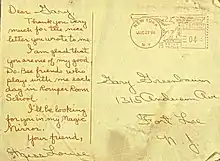 Dear Gary,
Thank you very
much for the nice
letter you wrote to me.
I am glad that
you are one of my good
Do-Bee friends who
plays with me each
day in Romper Room
School.
I'll be looking
for you in my Magic
Mirror.
Your friend,
Miss
NEW YORK
N.Y.
U.S. POSTAGE
04
Gary Greenbaum
1315 Anderson Ave
Fort Lee
N. J.